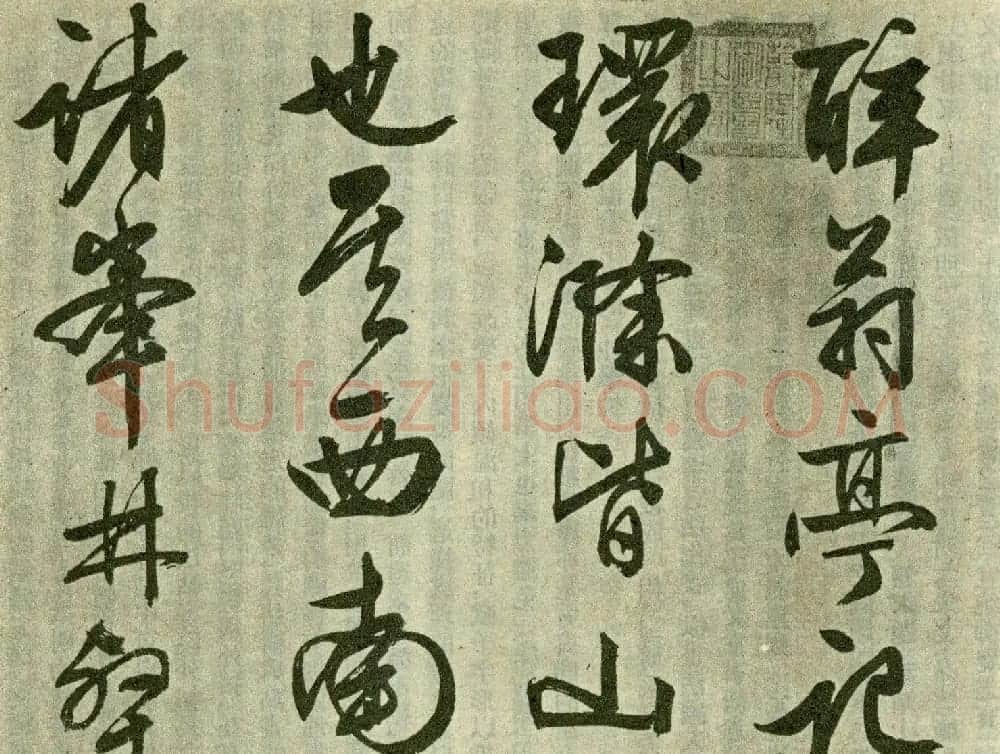 醉翁亭記
環滁皆山
也其西南
諸峯林壑
Shufaziliao.COM